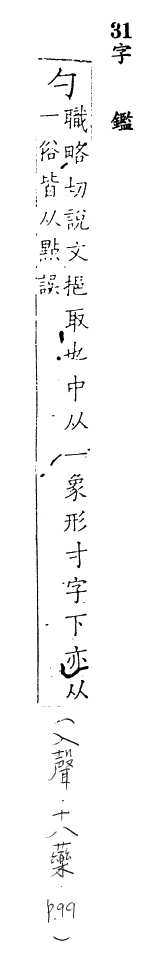 31字鑑
勺職略切說文挹取也中从一象形寸字下亦从
一俗皆从點誤
(入聲·十八藥·p.99)